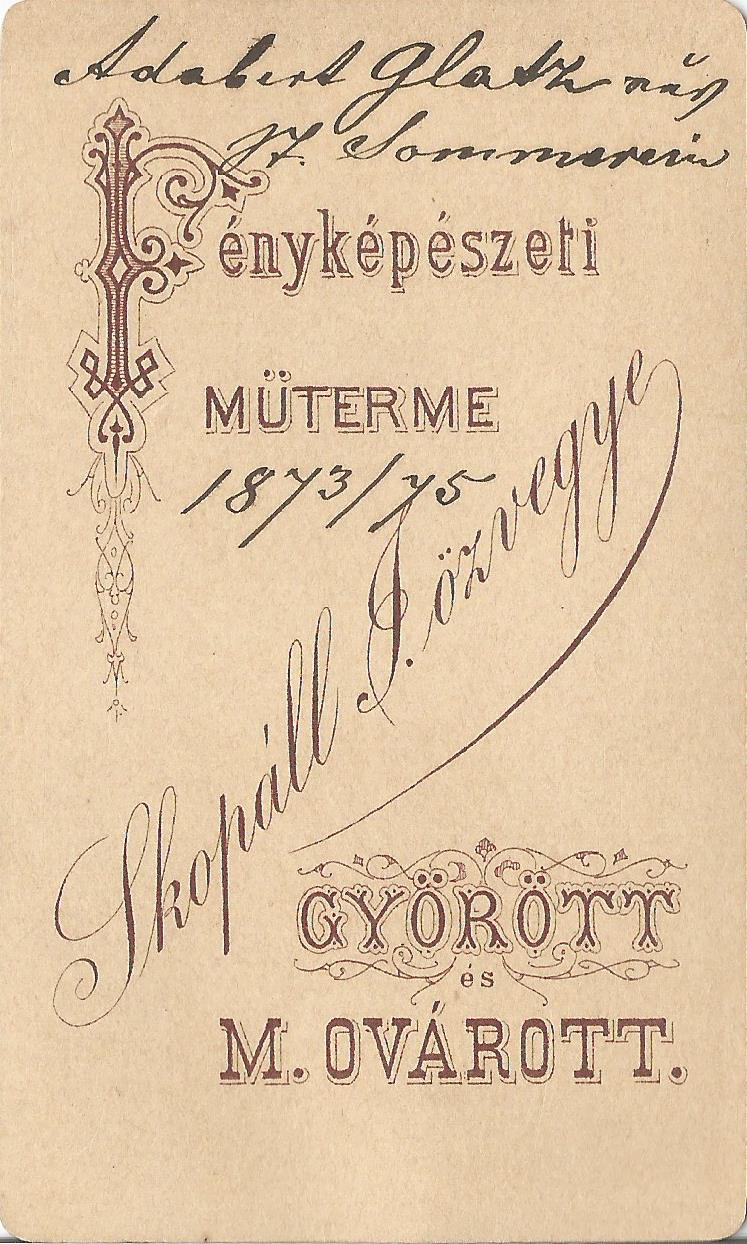 Adabert Glatz
St. Sommerein
Fényképészeti
MÜTERME
1873/75
Skopáll J. özvegye
GYÖRÖTT
és
M. OVÁROTT.